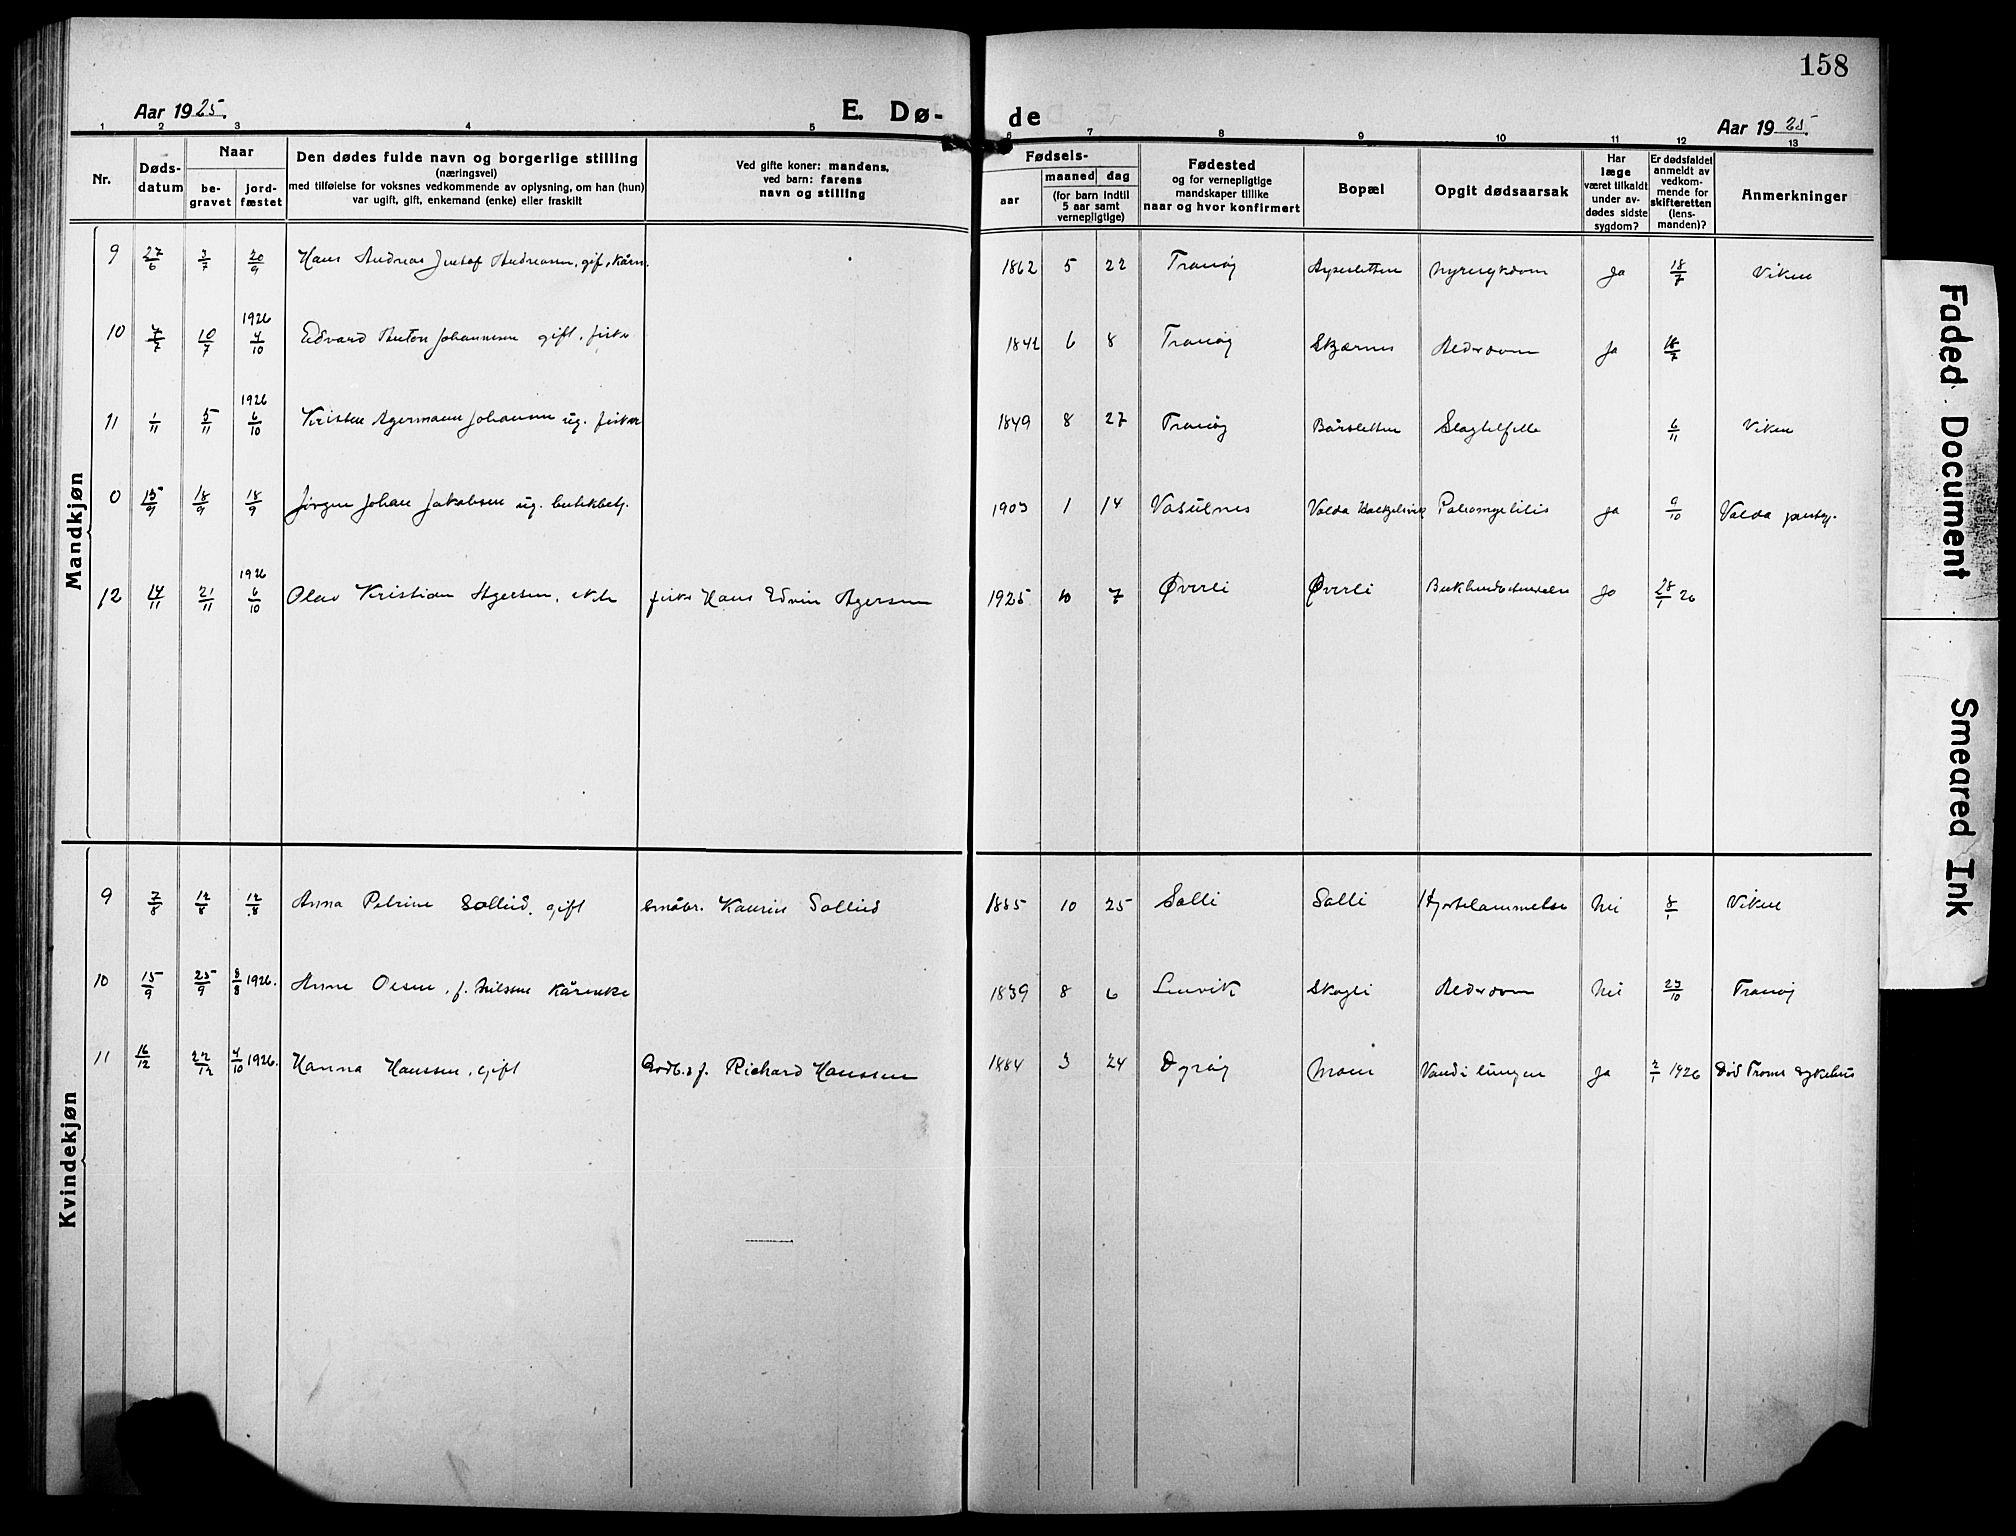 158
Aar 1925.
E. Dø-
de
Aar 1925.
1 2 3 4 5 6 7 8 9 10 11 12 13
Nr.
Døds-
datum
Naar
be-
gravet
jord-
fæstet
Den dødes fulde navn og borgerlige stilling
(næringsvei)
med tilføielse for voksnes vedkommende av oplysning, om han (hun)
var ugift, gift, enkemand (enke) eller fraskilt
Ved gifte koner: mandens,
ved barn: farens
navn og stilling
Fødsels-
aar
maaned dag
(for barn indtil
5 aar samt
vernepligtige)
Fødested
og for vernepligtige
mandskaper tillike
naar og hvor konfirmert
Bopæl
Opgit dødsaarsak
Har
læge
været tilkaldt
under av-
dødes sidste
sygdom?
Er dødsfaldet
anmeldt av
vedkom-
mende for
skifteretten
(lens-
manden)?
Anmerkninger
Mandkjøn
9 27/6 3/7 20/9 Hans Andreas Andreassen, gift, 1862 5 22 Tranøy nyresykdom Ja 18/7 Viken
10 10/7 1926 4/10 Edvard Anton Johannesen gift, fisker 1842 6 8 Tranøy Skjærnes Alderdom Ja 18/7
11 1/11 5/11 1926 6/10 Kristen Agermann Johansen ug. fisker 1849 8 27 Tranøy Bårsletten Slagtilfelle 6/11 Viken
0 15/9 18/9 18/9 Jørgen Johan Jakobsen ug. 1903 1 14 Ja 9/10 Volda
12 14/11 21/11 1926 6/10 Olav Kristian Agersen, ekte fisker Hans Edvin Agersen 1925 10 7 Øverli Øverli Ja 28/1 26
Kvindekjøn
9 7/8 12/8 12/8 Anna Petrine Sollied, gift småbr. Kaurin Sollied 1885 10 25 Solli Solli Hjertelammelse Nei 8/1 Viken
10 15/9 25/9 8/8 1926. Anne Olsen, f. Nilssen kårenke 1839 8 6 Lenvik Skogli Alderdom Nei 23/10 Tranøy
11 16/12 22/12 4/10 1926. Hanna Hanssen, gift Richard Hanssen 1884 3 24 Dyrøy Moen Vand i lungen Ja 2/1 1926 Død Troms sykehus
Faded Document
Smeared Ink